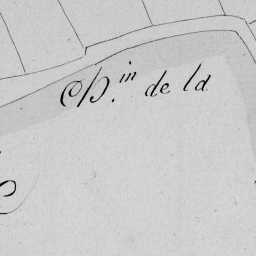 Ch.in de la